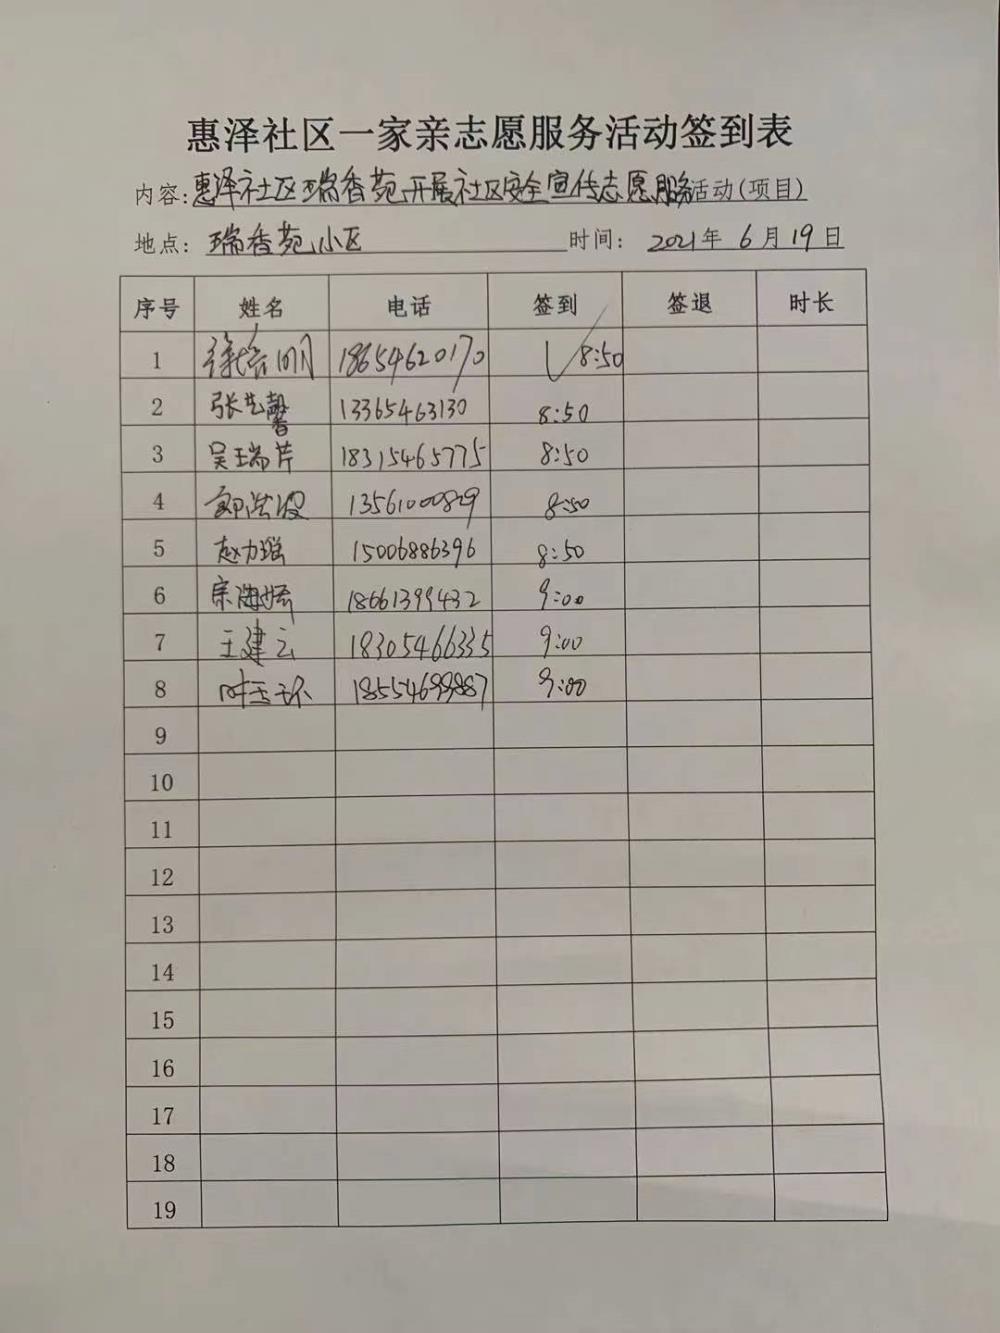 惠泽社区一家亲志愿服务活动签到表
内容:惠泽社区瑞香苑开展社区安全宣传志愿服务活动(项目)
地点: 瑞香苑小区 时间: 2021年 6月19日
序号 姓名 电话 签到 签退 时长
1 徐培明 18654620170 √8:50
2 张艺馨 13365463130 8:50
3 吴瑞芹 18315465775 8:50
4 13561000829 8:50
5 赵力瑶 15006886396 8:50
6 宗海婷 18661399432 9:00
7 王建云 18305466335 9:00
8 时玉环 18554699887 9:00
9
10
11
12
13
14
15
16
17
18
19